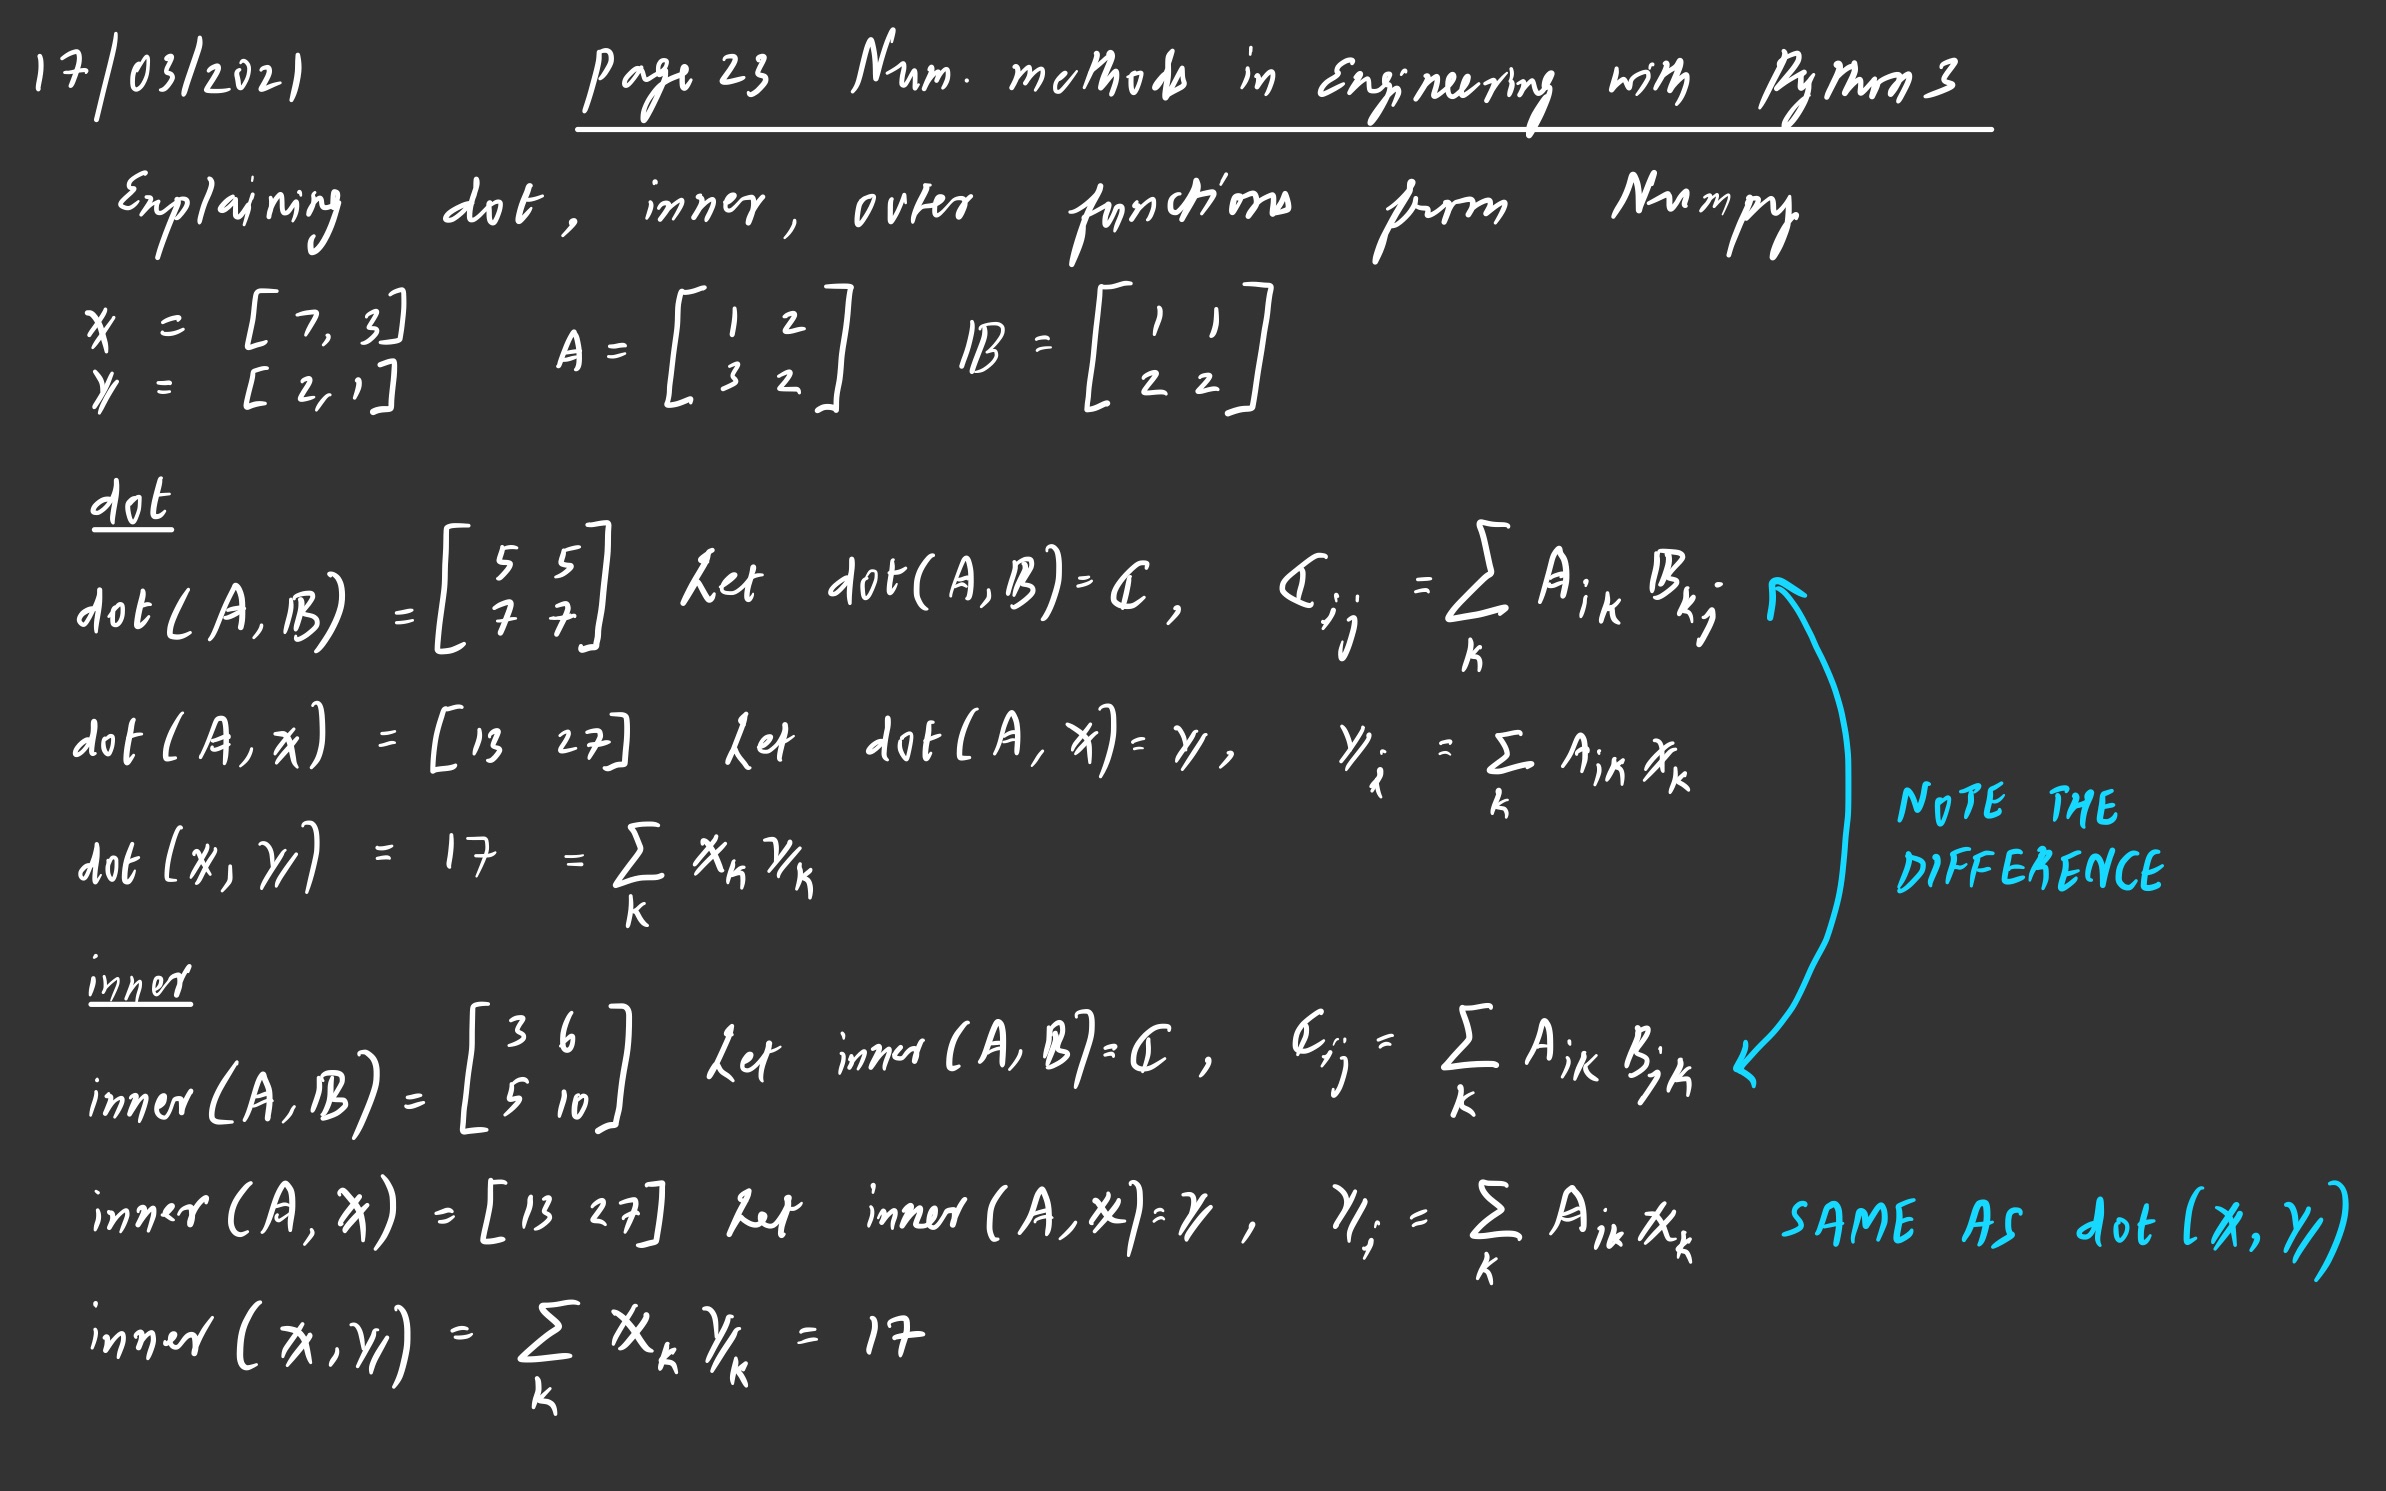 17/03/2021 page 23 Num. methods in engineering with Python 3
Explaining dot, inner, outer functions from Numpy
x = [7, 3]
y = [2, 1]
A = [1 2
3 2]
B = [1 1
2 2]
dot
dot(A, B) = [5 5
7 7] Let dot(A, B) = C, C_ij = Σ_k A_ik B_kj
dot(A, x) = [13 27] Let dot(A, x) = y, y_i = Σ_k A_ik x_k
dot(x, y) = 17 = Σ_k x_k y_k
NOTE THE
DIFFERENCE
inner
inner(A, B) = [3 6
5 10] Let inner(A, B) = C, C_ij = Σ_k A_ik B_jk
inner(A, x) = [13 27] Let inner(A, x) = y, y_i = Σ_k A_ik x_k SAME AS dot(x, y)
inner(x, y) = Σ_k x_k y_k = 17